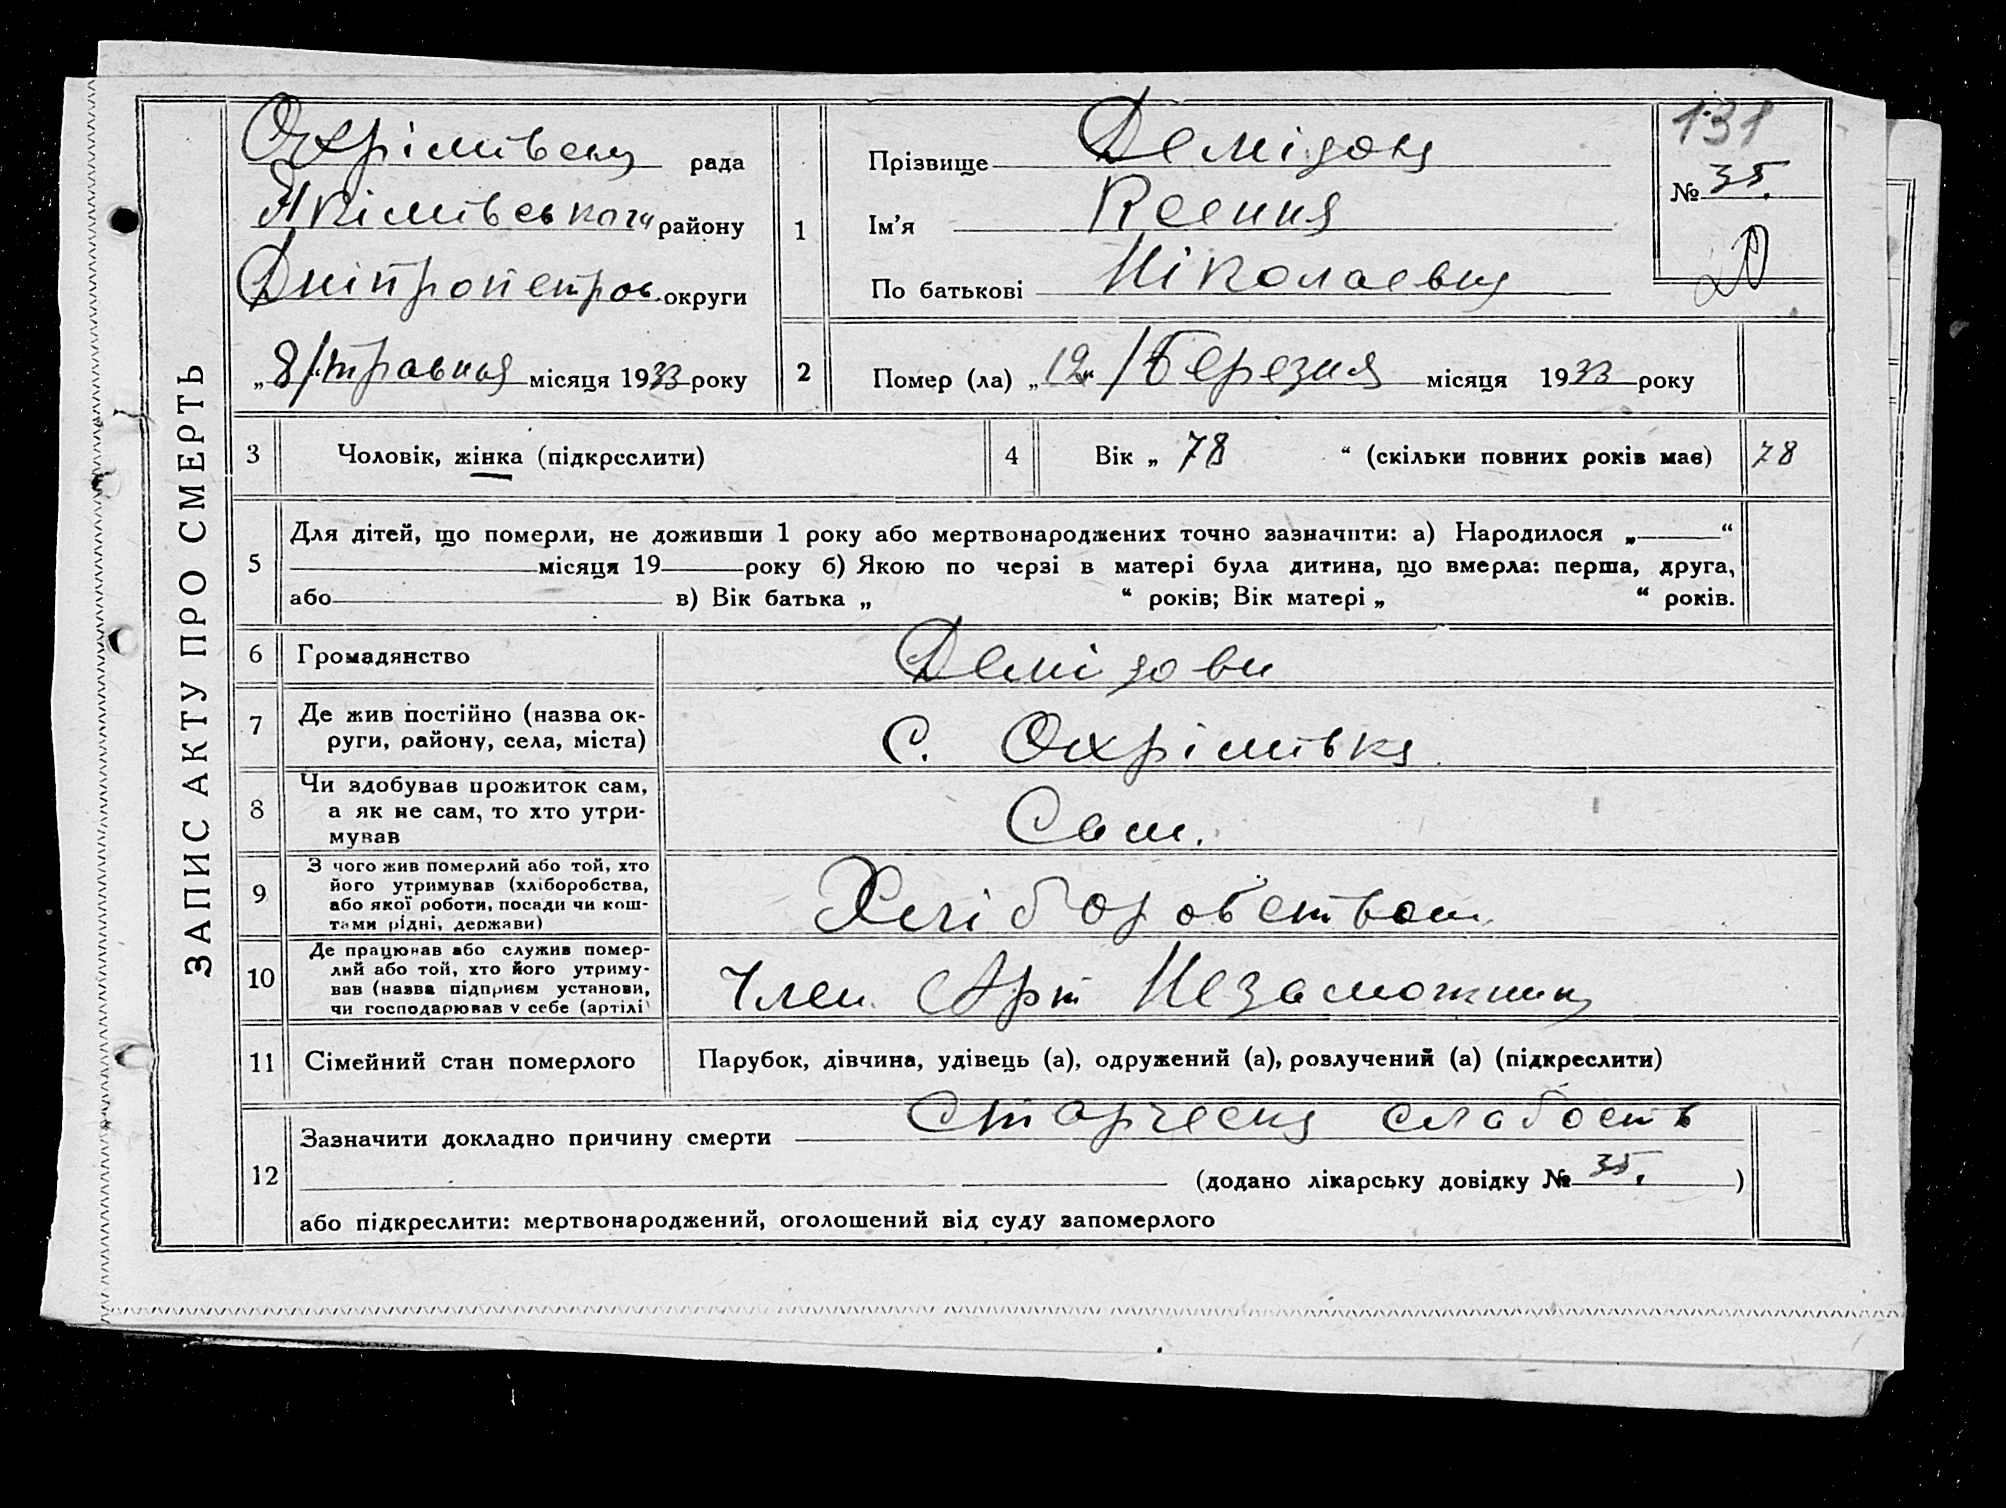 ЗАПИС АКТУ ПРО СМЕРТЬ
Охрімівська рада
Якімівського району
Дніпропетров. округи
„8/травня місяця 1933 року
1
Прізвище Демідова
Ім'я Ксения
По батькові Ніколаевна
131
№ 35.
2 Помер (ла) „12“/Березня місяця 1933 року
3 Чоловік, жінка (підкреслити)
4 Вік „ 78 “ (скільки повних років має) 78
5 Для дітей, що померли, не доживши 1 року або мертвонароджених точно зазначити: а) Народилося „ “
місяця 19 року б) Якою по черзі в матері була дитина, що вмерла: перша, друга,
або в) Вік батька „ “ років; Вік матері „ “ років.
6 Громадянство Демідови
7 Де жив постійно (назва ок-
руги, району, села, міста) С. Охрімівка
8 Чи здобував прожиток сам,
а як не сам, то хто утри-
мував Сам.
9 З чого жив померлий або той, хто
його утримував (хліборобства,
або якої роботи, посади чи кош-
тами рідні, держави) Хліборобством
10 Де працював або служив помер-
лий або той, хто його утриму-
вав (назва підприєм установи,
чи господарював у себе (артілі) Член Арт Незаможник
11 Сімейний стан померлого Парубок, дівчина, удівець (а), одружений (а), розлучений (а) (підкреслити)
12 Зазначити докладно причину смерти Старческа слабость
(додано лікарську довідку № 35. )
або підкреслити: мертвонароджений, оголошений від суду запомерлого